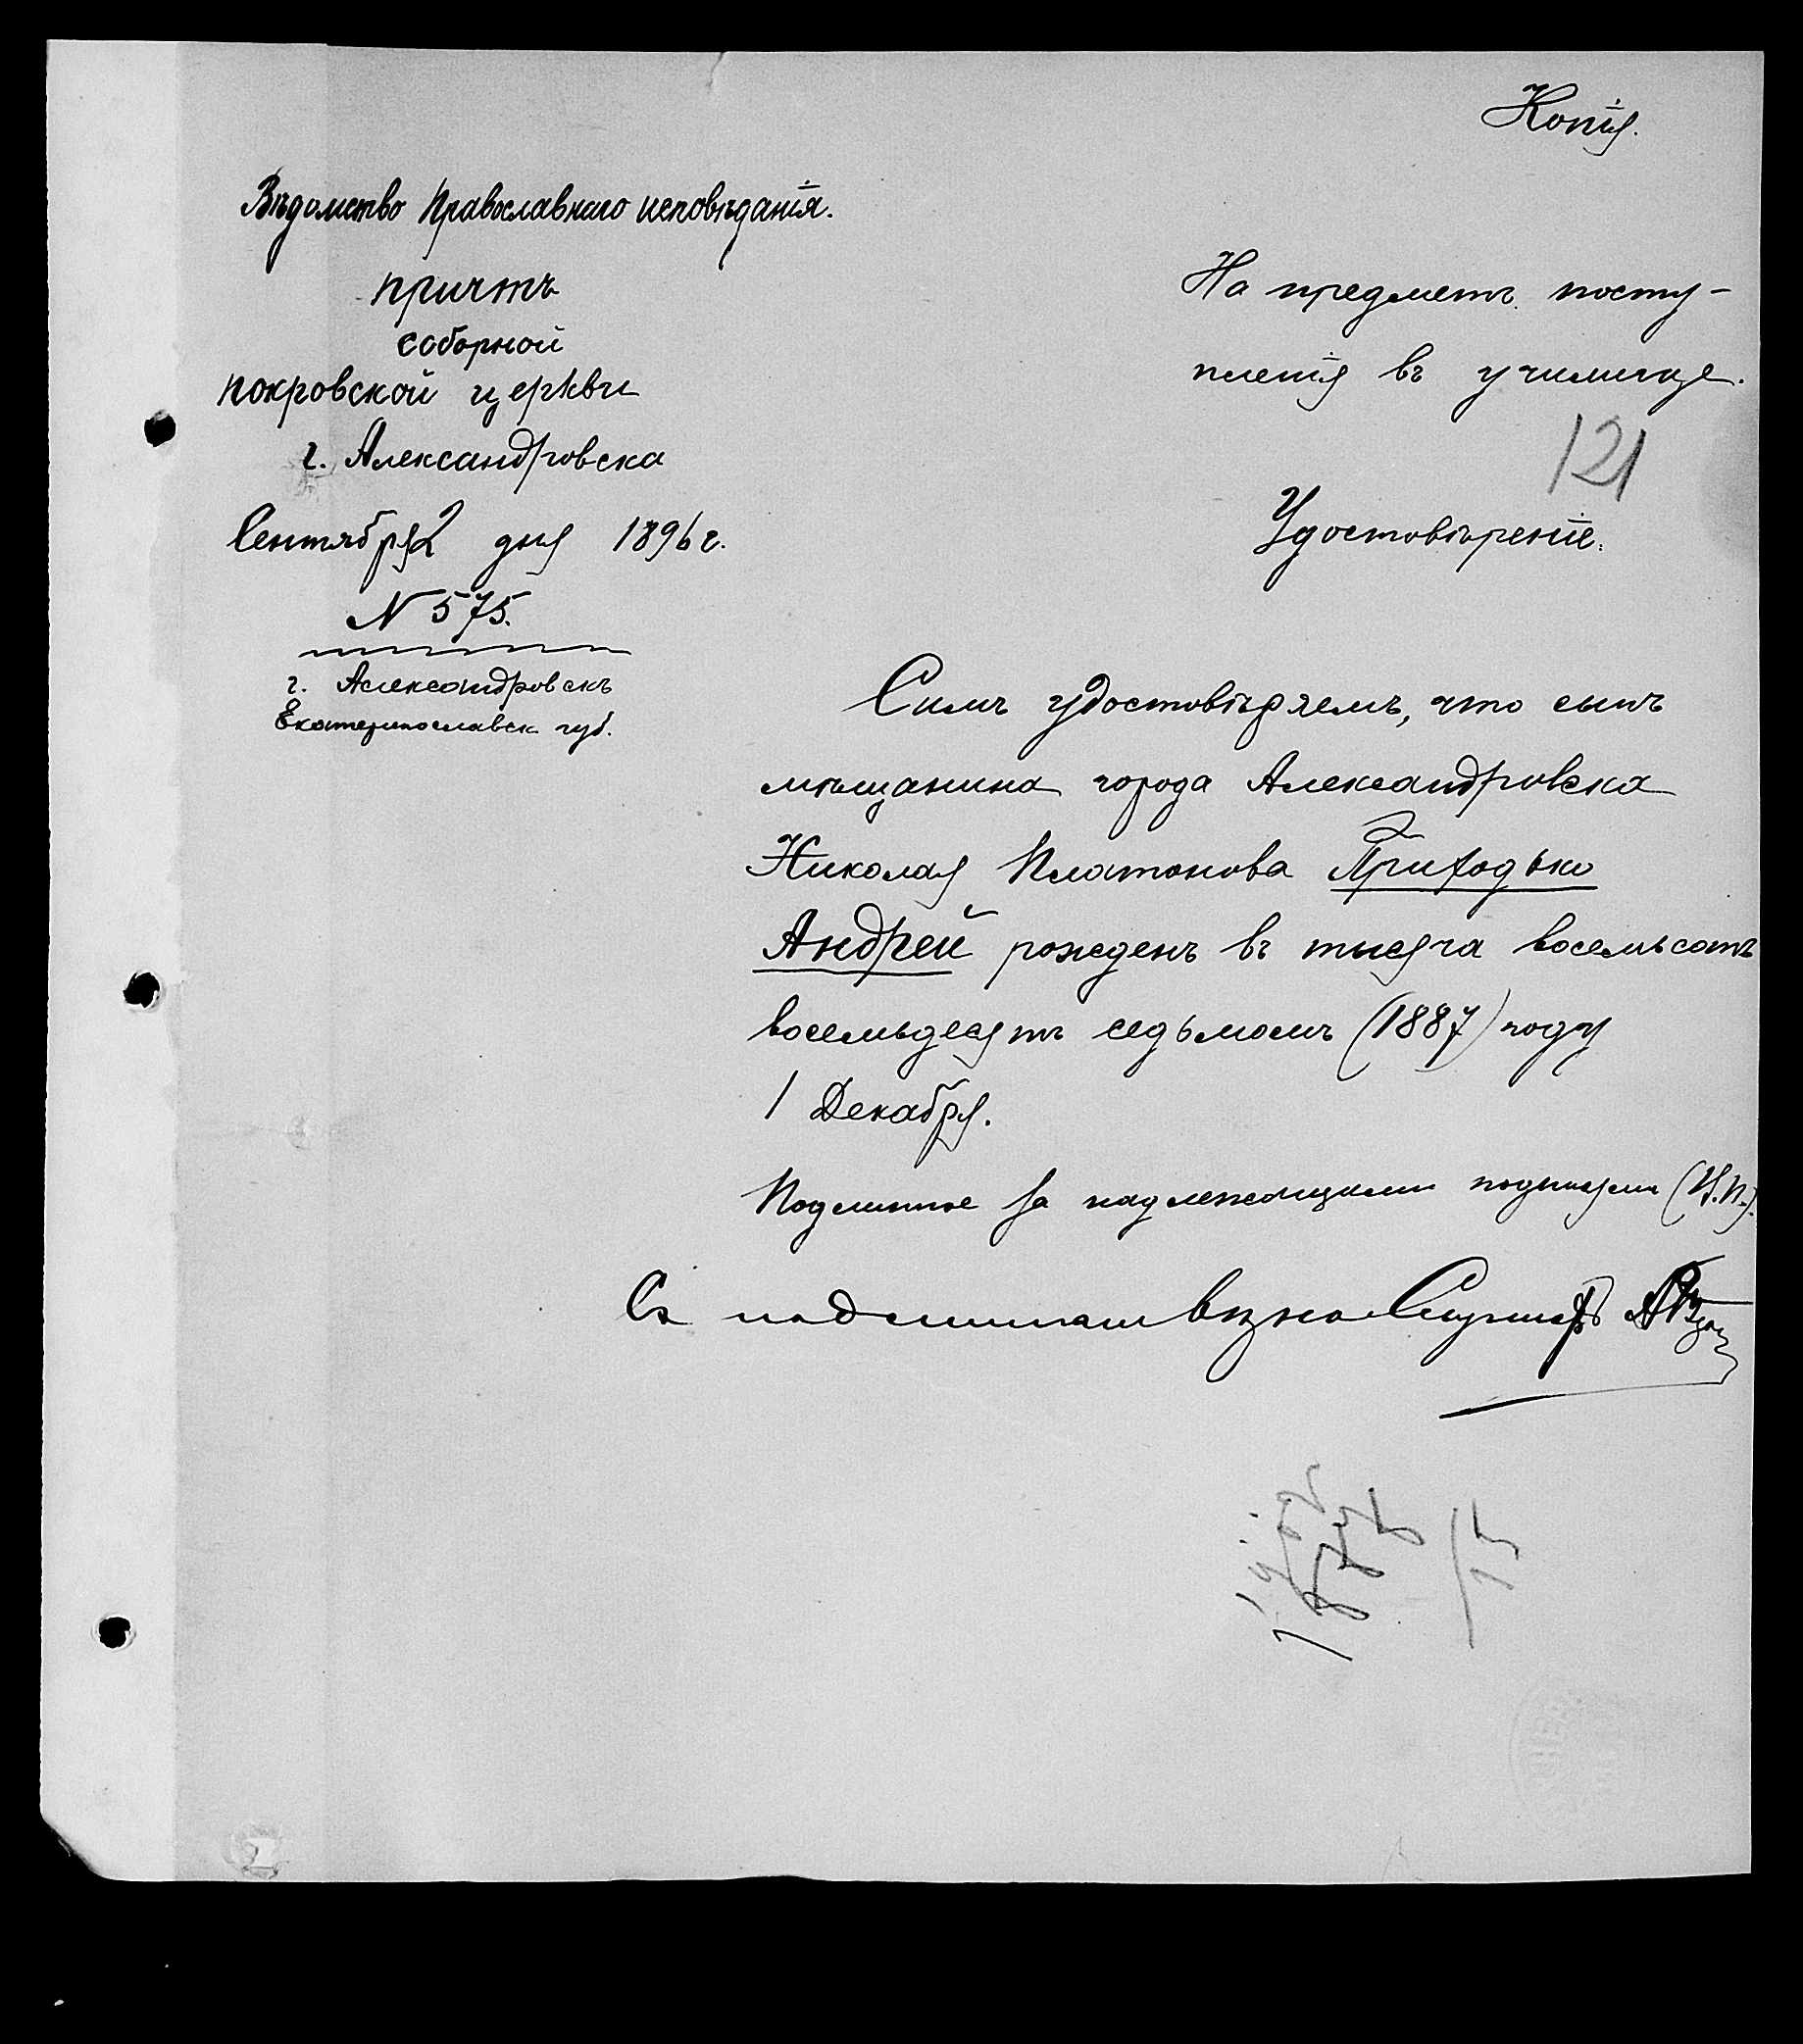 Копія.
Вѣдомство Православнаго исповѣданія.
причтъ
соборной
покровской церкви
г. Александровска
Сентября 2 дня 1896 г.
N 575.
г. Александровскъ
Екатеринославск. губ.
На предметъ посту-
пленія въ училище.
121
Удостовѣреніе.
Симъ удостовѣряемъ, что сынъ
мѣщанина города Александровска
Николая Платонова Приходько
Андрей рожденъ въ тысяча восемьсотъ
восемьдесятъ седьмомъ (1887) году
1 Декабря.
Подлинное за надлежащими подписями (Ц.П.).
Съ подлиннымъ вѣрно